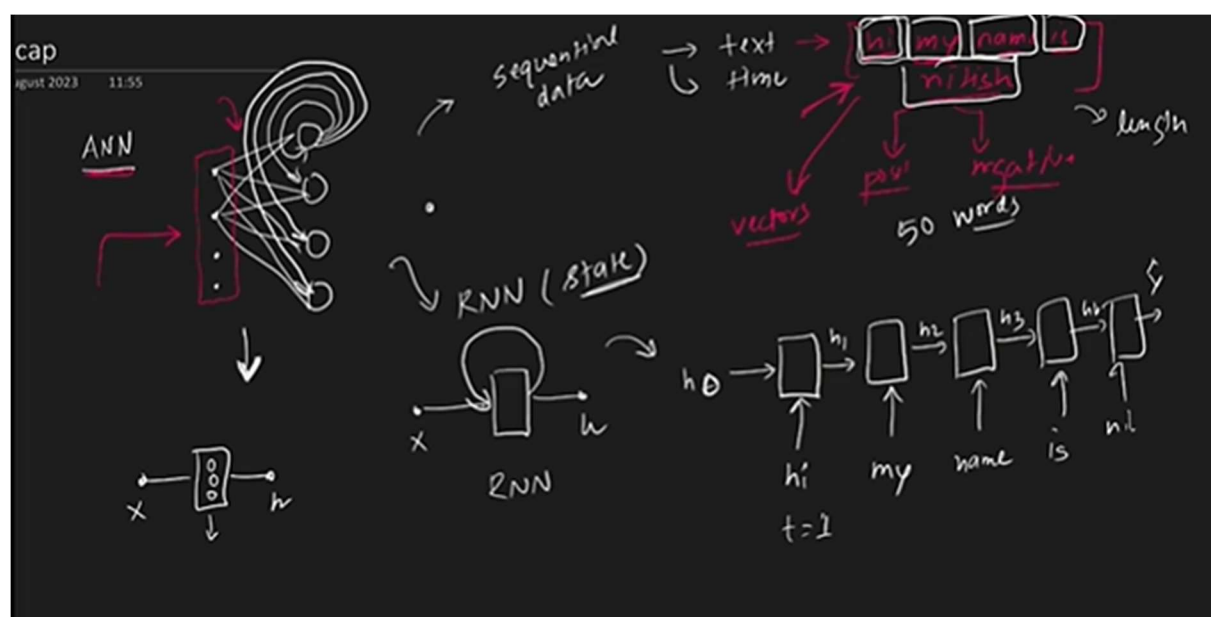 cap
ugust 2023 11:55
ANN
sequential data
→ text
time
hi my name is
nitish
length
vectors
posi
negative
50 words
RNN (state)
x
h
RNN
x
h
h0
h1
h2
h3
h4
ŷ
hi
my
name
is
nit
t=1